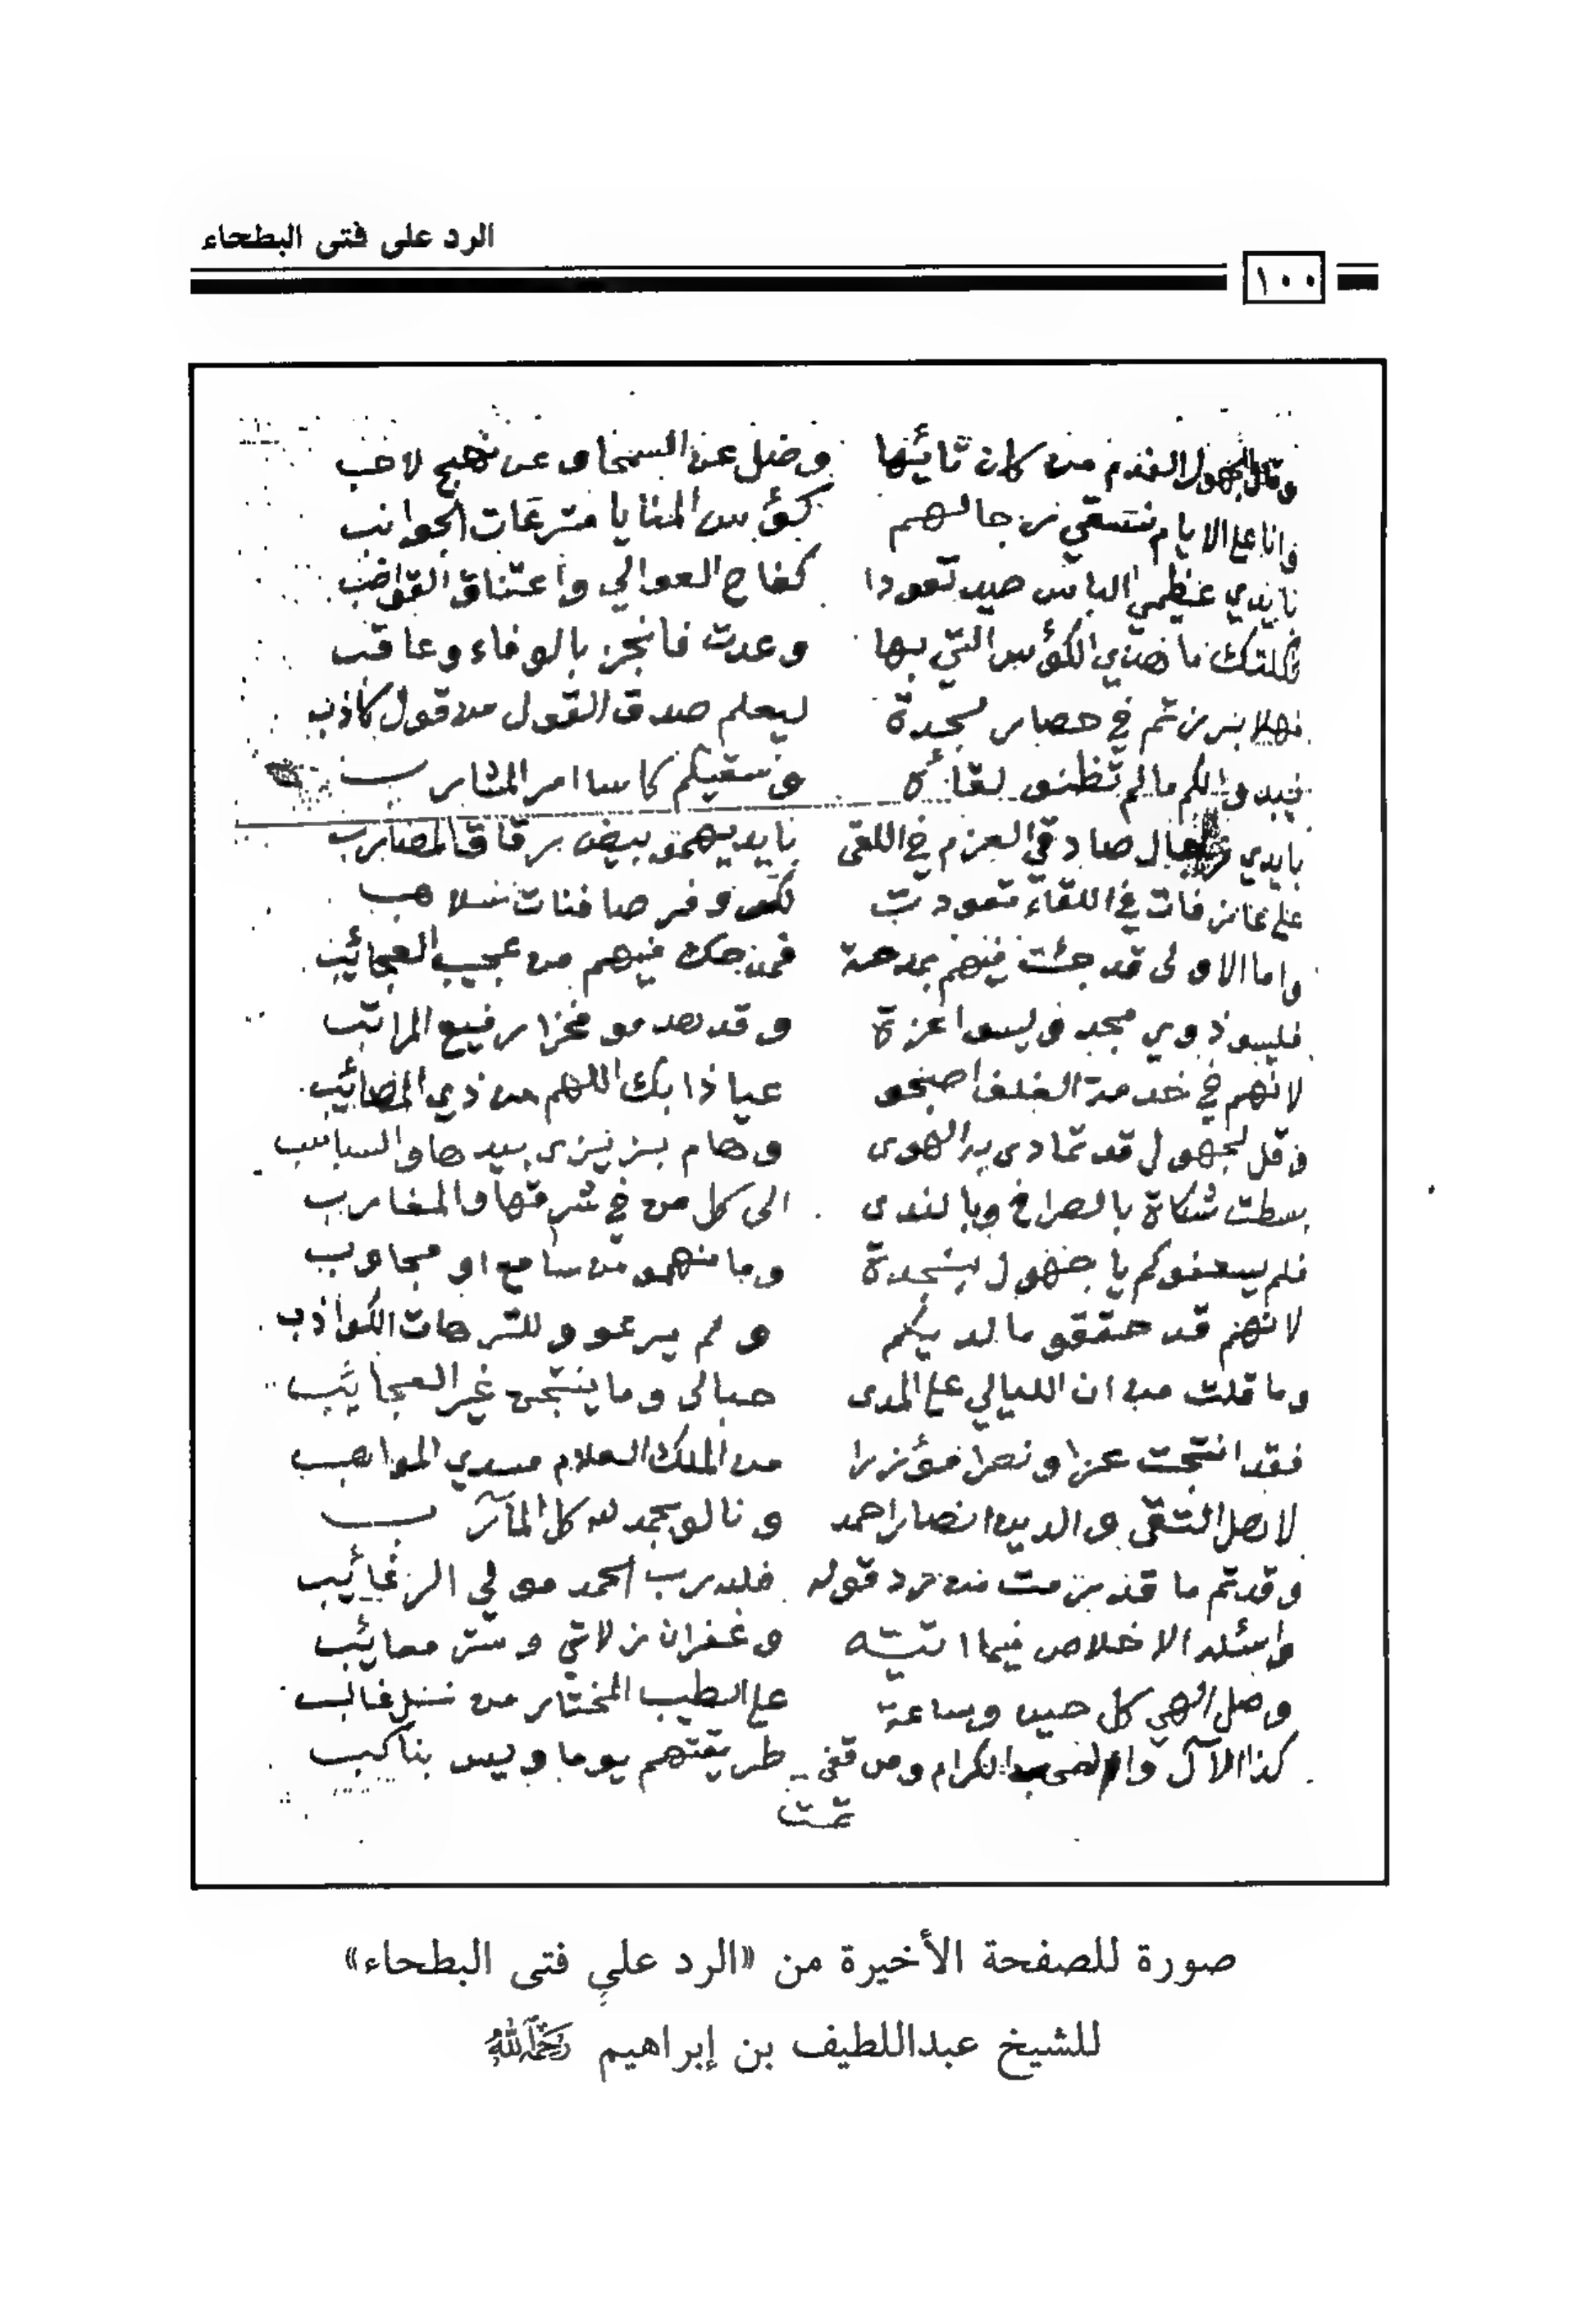 الرد على فتى البطحاء
١٠٠
وقال الجهول الفدم من كان تائها وضل عن السمحا وعن نهج لاحب
وانا على الايام نسقي رجالهم كؤس المنايا مترعات الجوانب
بايدي عظيمي الباس صيد تعودا كفاح العوالي واعتناق القواضب
ثكلتك ما هذي الكؤس التي بها وعدت فانجز بالوفاء وعاقب
فهلا برزتم في حصار لجدة ليعلم صدق القول من قول كاذب
فيبدو لكم ما لم تظنو لقائه ونسقيكم كاسا امر المشارب
بايدي رجال صادقي العزم في اللقى بايديهمو بيض رقاق المضارب
على عازفات في اللقاء تعودت لكر وفر صافنات سلاهب
واما الاولى قد جئت فيهم بمدحة فمدحك فيهم من عجيب العجائب
فليسو ذوي مجد وليسوا اعزة وقد هدمو فخزا رفيع المراتب
لانهم في خدمة الغلف اصبحو عياذا بك اللهم من ذي المصائب
وقل لجهول قد تمادى به الهوى وهام بزيزى بيدها والسباسب
بسطت شكاة بالصراخ وبالندى الى كل من في شرقها والمغارب
فلم يسعفوكم يا جهول بنجدة وما منهمو من سامع او مجاوب
لانهم قد حققو ما لديكم ولم يرعوو للترهات الكواذب
وما قلت من ان الليالي على المدى حبالى وما ينتجن غير العجائب
فقد انتجت عزا ونصرا مؤزرا من الملك العلام مسدي المواهب
لاهل التقى والدين انصار احمد ونالو بحمد لله كل المآرب
وقد تم ما قد رمت من رد قوله فلله رب الحمد مولي الرغائب
واسئله الاخلاص فيما اتيته وغفران زلاتي وستر معائب
وصل الهي كل حين وساعة على الطيب المختار من نسل غالب
كذا الآل والصحب الكرام ومن قفى طريقتهم يوما وليس بناكب
تمت
صورة للصفحة الأخيرة من «الرد على فتى البطحاء»
للشيخ عبداللطيف بن إبراهيم رحمه الله